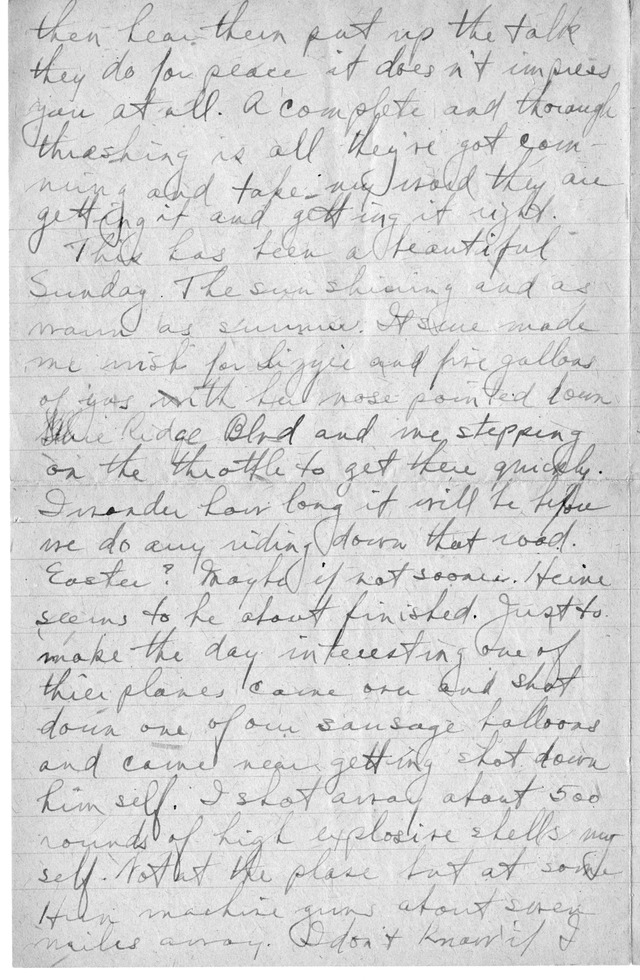 then hear them put up the talk
they do for peace it does n't impress
you at all. A complete and thorough
thrashing is all they've got com-
ming and take my word they are
getting it and getting it right.
This has been a beautiful
Sunday. The sun shining and as
warm as summer. It sure made
me wish for Lizzie and five gallons
of gas with her nose pointed down
Blue Ridge Blvd and me stepping
on the throttle to get there quickly.
I wonder how long it will be before
we do any riding down that road.
Easter? Maybe if not sooner. Heine
seems to be about finished. Just to
make the day interesting one of
thier planes came over and shot
down one of our sausage balloons
and came near getting shot down
him self. I shot away about 500
rounds of high explosive shells my
self. Not at the plane but at some
Hun machine guns about seven
miles away. I don't know if I